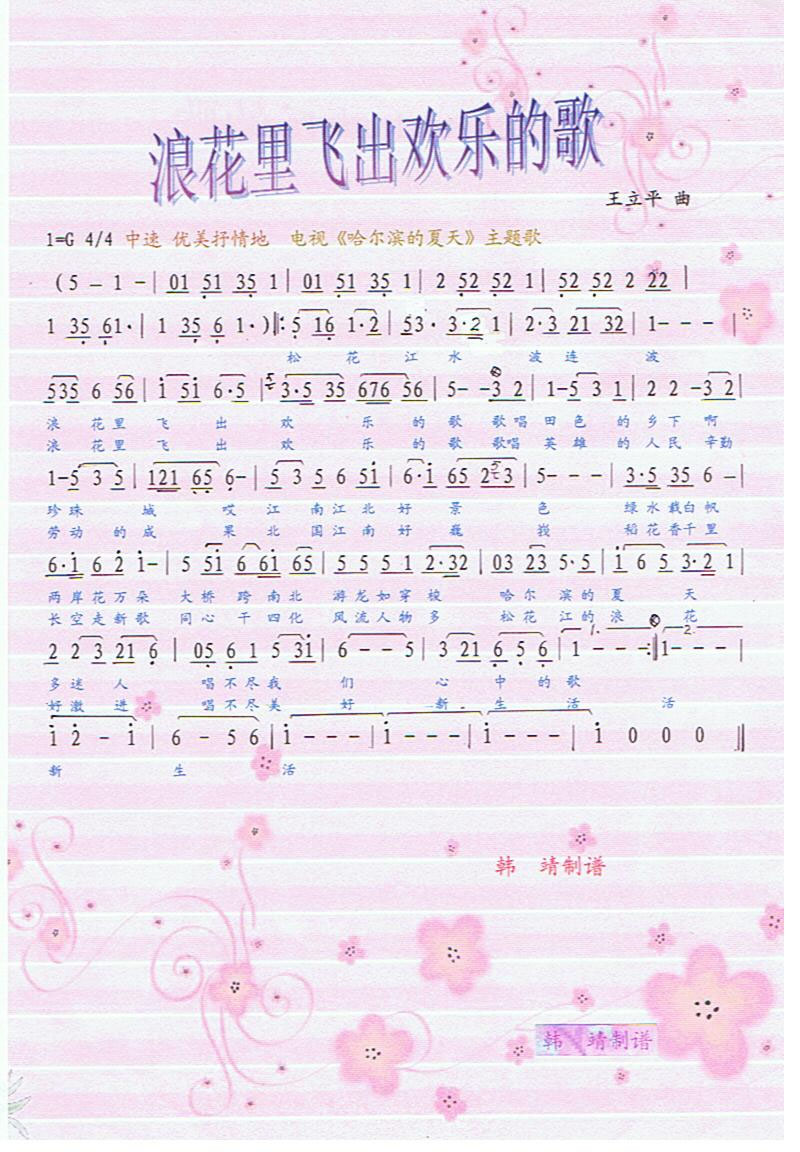 浪花里飞出欢乐的歌
王立平 曲
1=G 4/4 中速 优美抒情地 电视《哈尔滨的夏天》主题歌
(5 — 1 —| 01 51 35 1| 01 51 35 1| 2 52 52 1| 52 52 2 22|
1 35 61·| 1 35 6 1·)‖: 5 16 1·2| 53· 3·2 1| 2·3 21 32| 1- - -|
松 花 江 水 波 连 波
535 6 56| 1 51 6·5| 3·5 35 676 56| 5- -3 2| 1-5 3 1| 2 2 -3 2|
浪 花 里 飞 出 欢 乐 的 歌 歌 唱 田 色 的 乡 下 啊
浪 花 里 飞 出 欢 乐 的 歌 歌 唱 英 雄 的 人 民 辛勤
1-5 3 5| 121 65 6-| 5 3 5 6 51| 6·1 65 253| 5- - -| 3·5 35 6 –|
珍 珠 城 哎 江 南 江 北 好 景 色 绿 水 载 白 帆
劳 动 的 成 果 北 国 江 南 好 巍 峩 稻 花 香 千 里
6·1 62 1-| 5 51 6 61 65| 5 5 5 1 2·32| 03 23 5·5| 1 6 5 3·2 1|
两 岸 花 万 朵 大 桥 跨 南 北 游 龙 如 穿 梭 哈 尔 滨 的 夏 天
长 空 走 新 歌 同 心 干 四 化 风 流 人 物 多 松 花 江 的 浪 花
2 2 3 21 6| 05 6 1 5 31| 6 - - 5| 3 21 6 5 6| 1 - - -:‖ 1.1- - - 2.|
多 迷 人 唱 不 尽 我 们 心 中 的 歌
好 激 进 唱 不 尽 美 好 新 生 活 活
1 2 - 1| 6 - 5 6| 1 - - -| 1- - -| 1- - -| 1 0 0 0 ‖
新 生 活
韩 靖制谱
韩 靖制谱